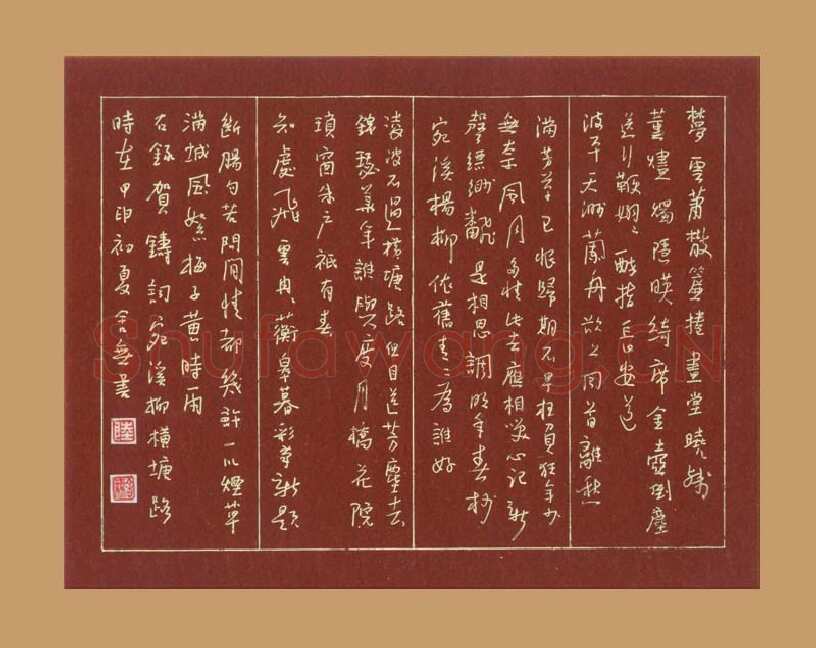 夢雲蕭散簾捲畫堂曉殘
薰燼燭隱映綺席金壺倒塵
送行鞭嫋〻醉指長安道
波平天渺蘭舟欲上回首離愁
滿芳草已恨歸期不早枉負狂年少
無奈風月多情此去應相笑心記新
聲縹緲翻是相思調明年春杪
宛溪楊柳依舊青〻為誰好
凌波不過橫塘路但目送芳塵去
錦瑟華年誰與度月橋花院
瑣窗朱戶祇有春
知處飛雲冉〻蘅皋暮彩筆新題
斷腸句若問閒情都幾許一川煙草
滿城風絮梅子黃時雨
右錄賀鑄詞宛溪柳橫塘路
時在甲初夏舍無書
Shufawang.CN